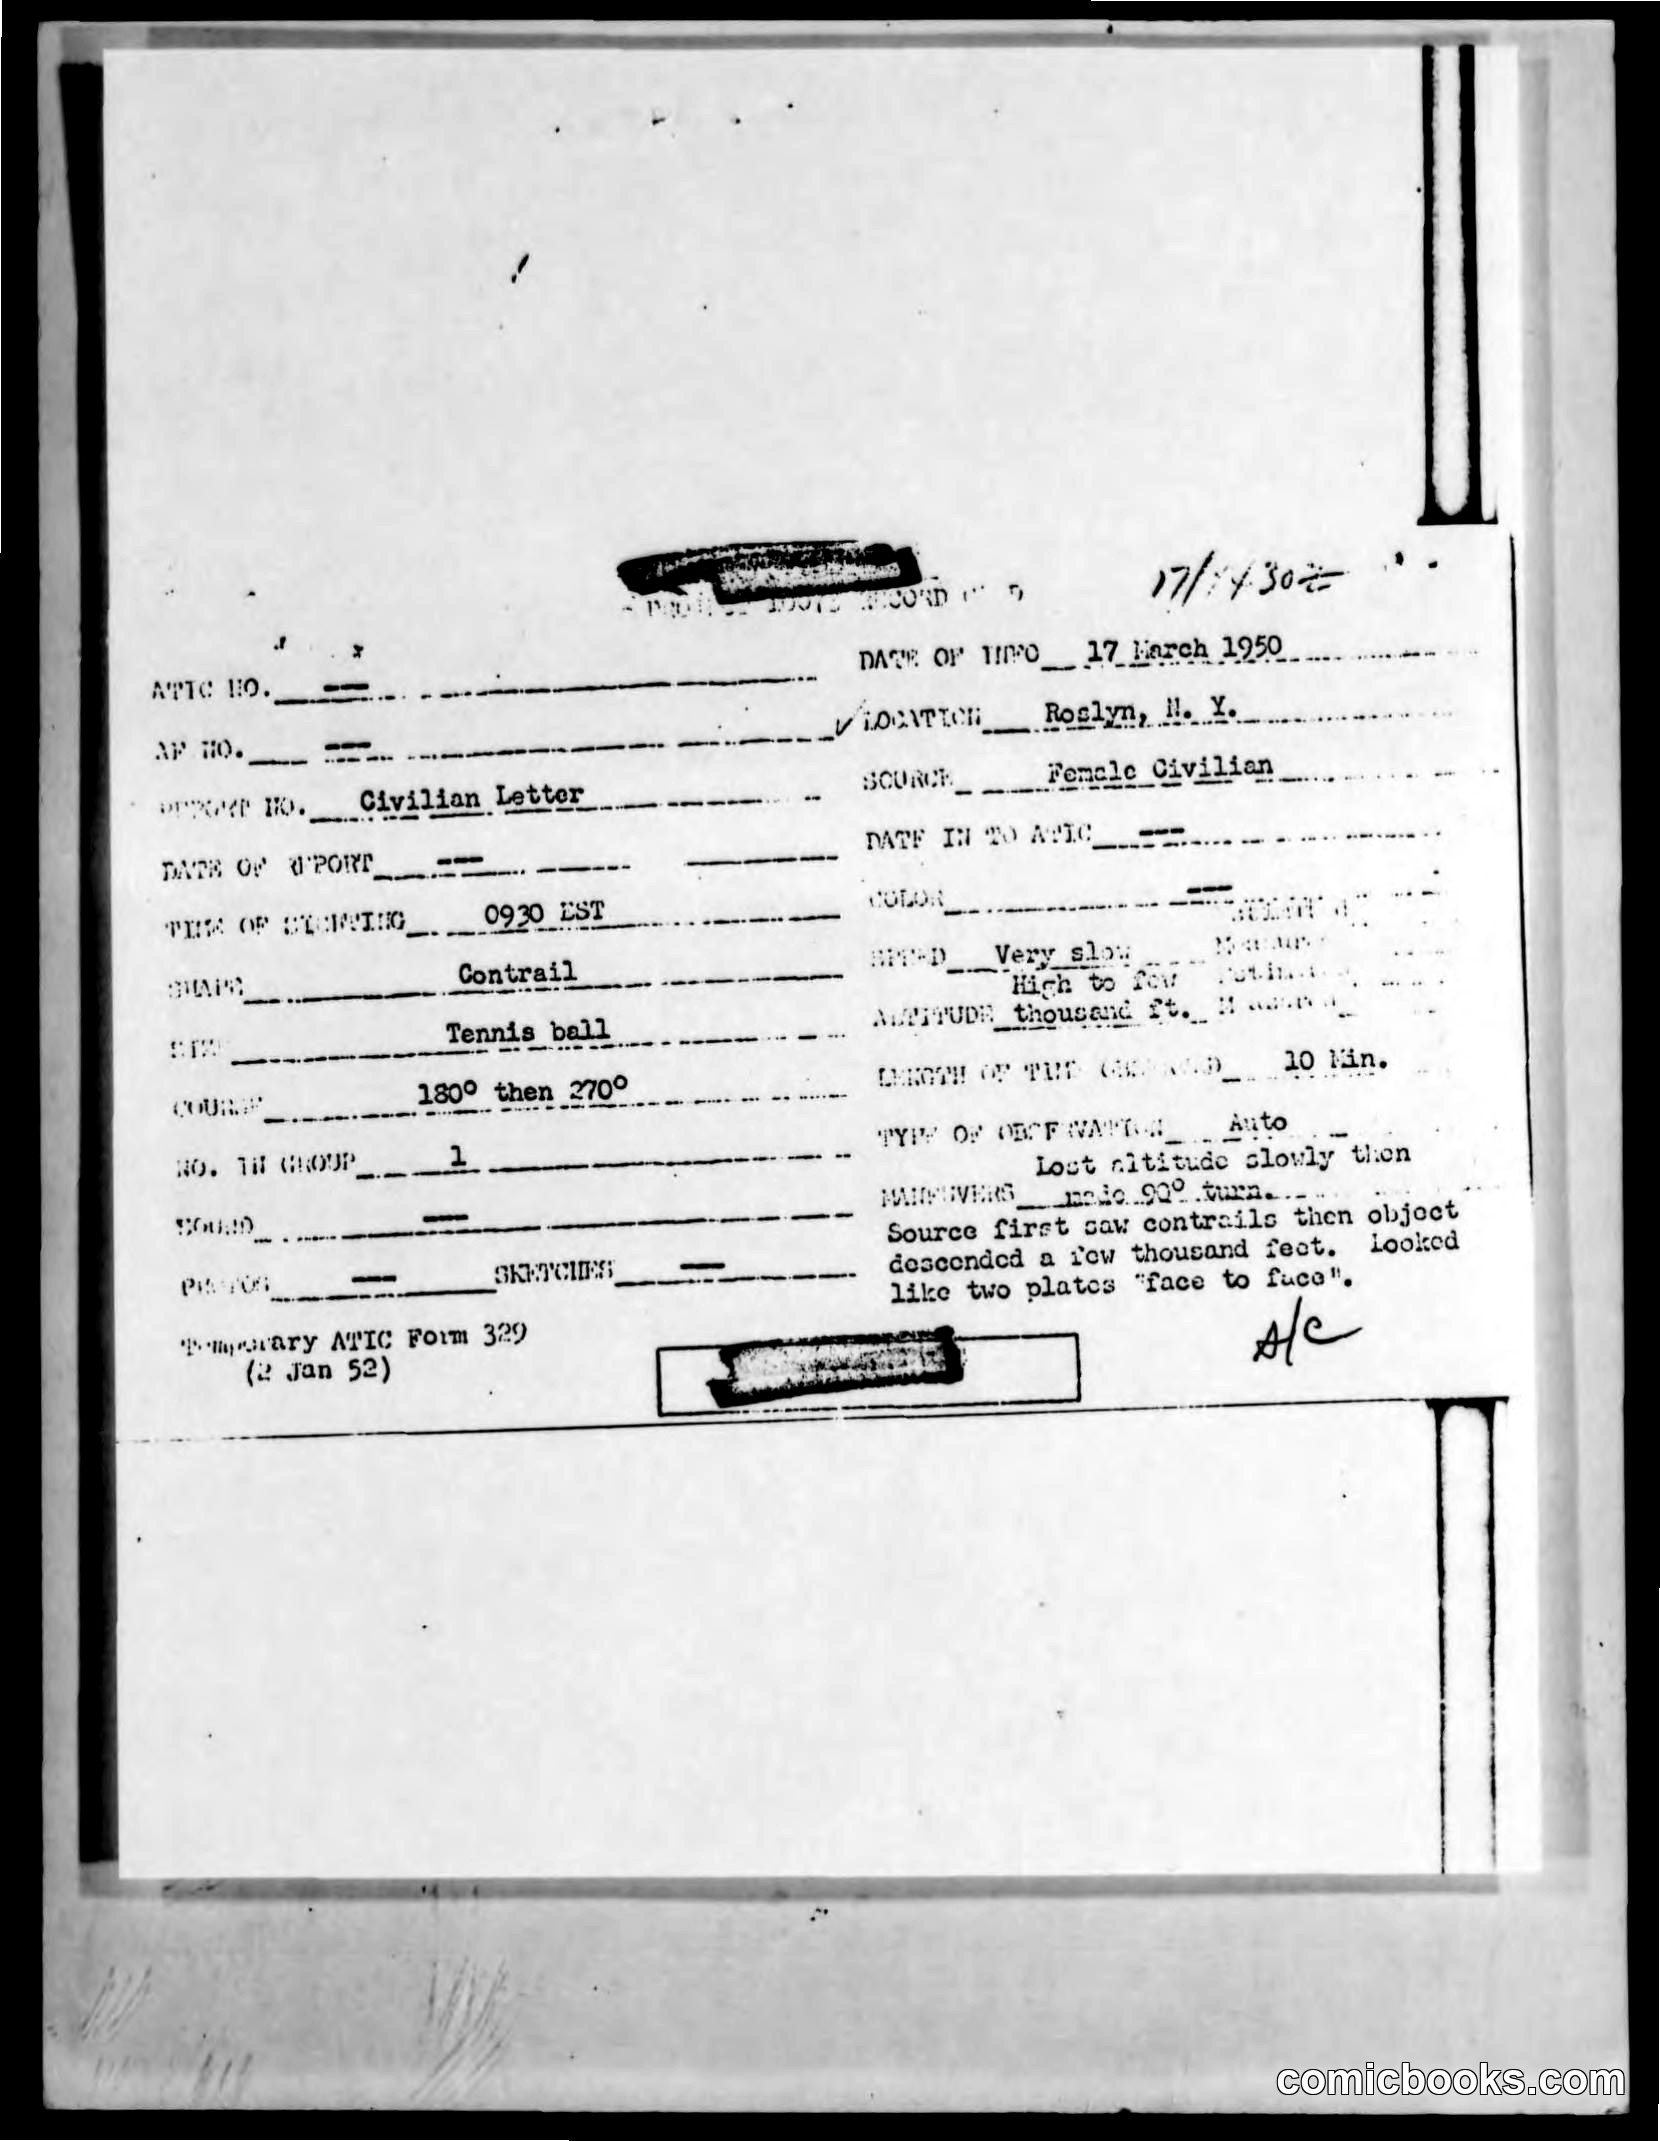 RECORD
17/1430Z
ATIC NO. ---
DATE OF INFO 17 March 1950
AF NO. ---
✓ LOCATION Roslyn, N. Y.
REPORT NO. Civilian Letter
SOURCE Female Civilian
DATE OF REPORT ---
DATE IN TO ATIC ---
TIME OF SIGHTING 0930 EST
COLOR ---
SHAPE Contrail
SPEED Very slow
SIZE Tennis ball
High to few
ALTITUDE thousand ft.
COURSE 180° then 270°
LENGTH OF TIME OBSERVED 10 Min.
NO. IN GROUP 1
TYPE OF OBSERVATION Auto
SOUND ---
Lost altitude slowly then
MANEUVERS made 90° turn.
PHOTOS --- SKETCHES ---
Source first saw contrails then object
descended a few thousand feet. Looked
like two plates "face to face".
Temporary ATIC Form 329
(2 Jan 52)
A/C
comicbooks.com